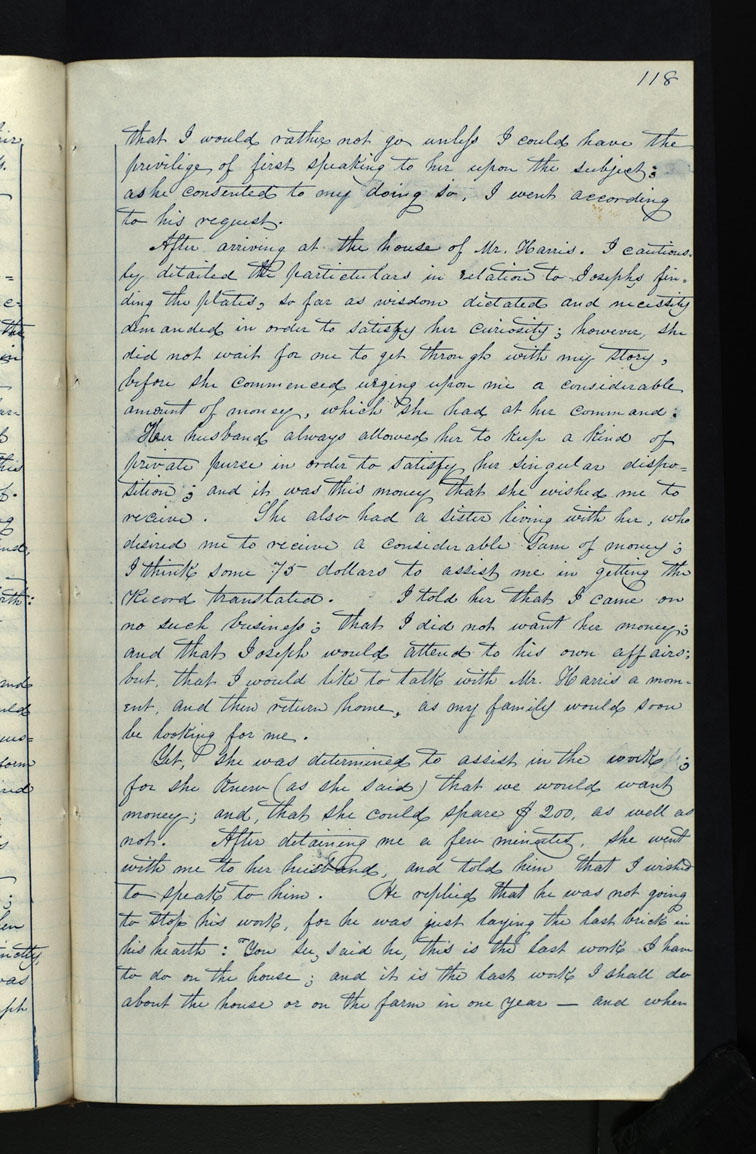 118
that I would rather not go unless I could have the
privilige of first speaking to her upon the subject;
as he consented to my doing so, I went according
to his request.
After arriving at the house of Mr. Harris. I cautious-
ly detailed the particulars in relation to Josephs fin-
ding the plates, so far as wisdom dictated and necessity
demanded in order to satisfy her curiosity; however, she
did not wait for me to get through with my story,
before she commenced urging upon me a considerable
amount of money, which she had at her command;
Her husband always allowed her to keep a kind of
private purse in order to satisfy her singular dispo=
sition; and it was this money that she wished me to
receive. She also had a sister living with her, who
desired me to receive a considerable sum of money;
I think some 75 dollars to assist me in getting the
Record translated. I told her that I came on
no such business; that I did not want her money;
and that Joseph would attend to his own affairs;
but, that I would like to talk with Mr. Harris a mom-
ent, and then return home, as my family would soon
be looking for me.
Yet, she was determined to assist in the work;
for she knew (as she said) that we would want
money; and, that she could spare $200, as well as
not. After detaining me a few minutes, she went
with me to her husband, and told him that I wished
to speak to him. He replied that he was not going
to stop his work, for he was just laying the last brick in
his hearth: "You see, said he, this is the last work I have
to do on the house; and it is the last work I shall do
about the house or on the farm in one year — and when